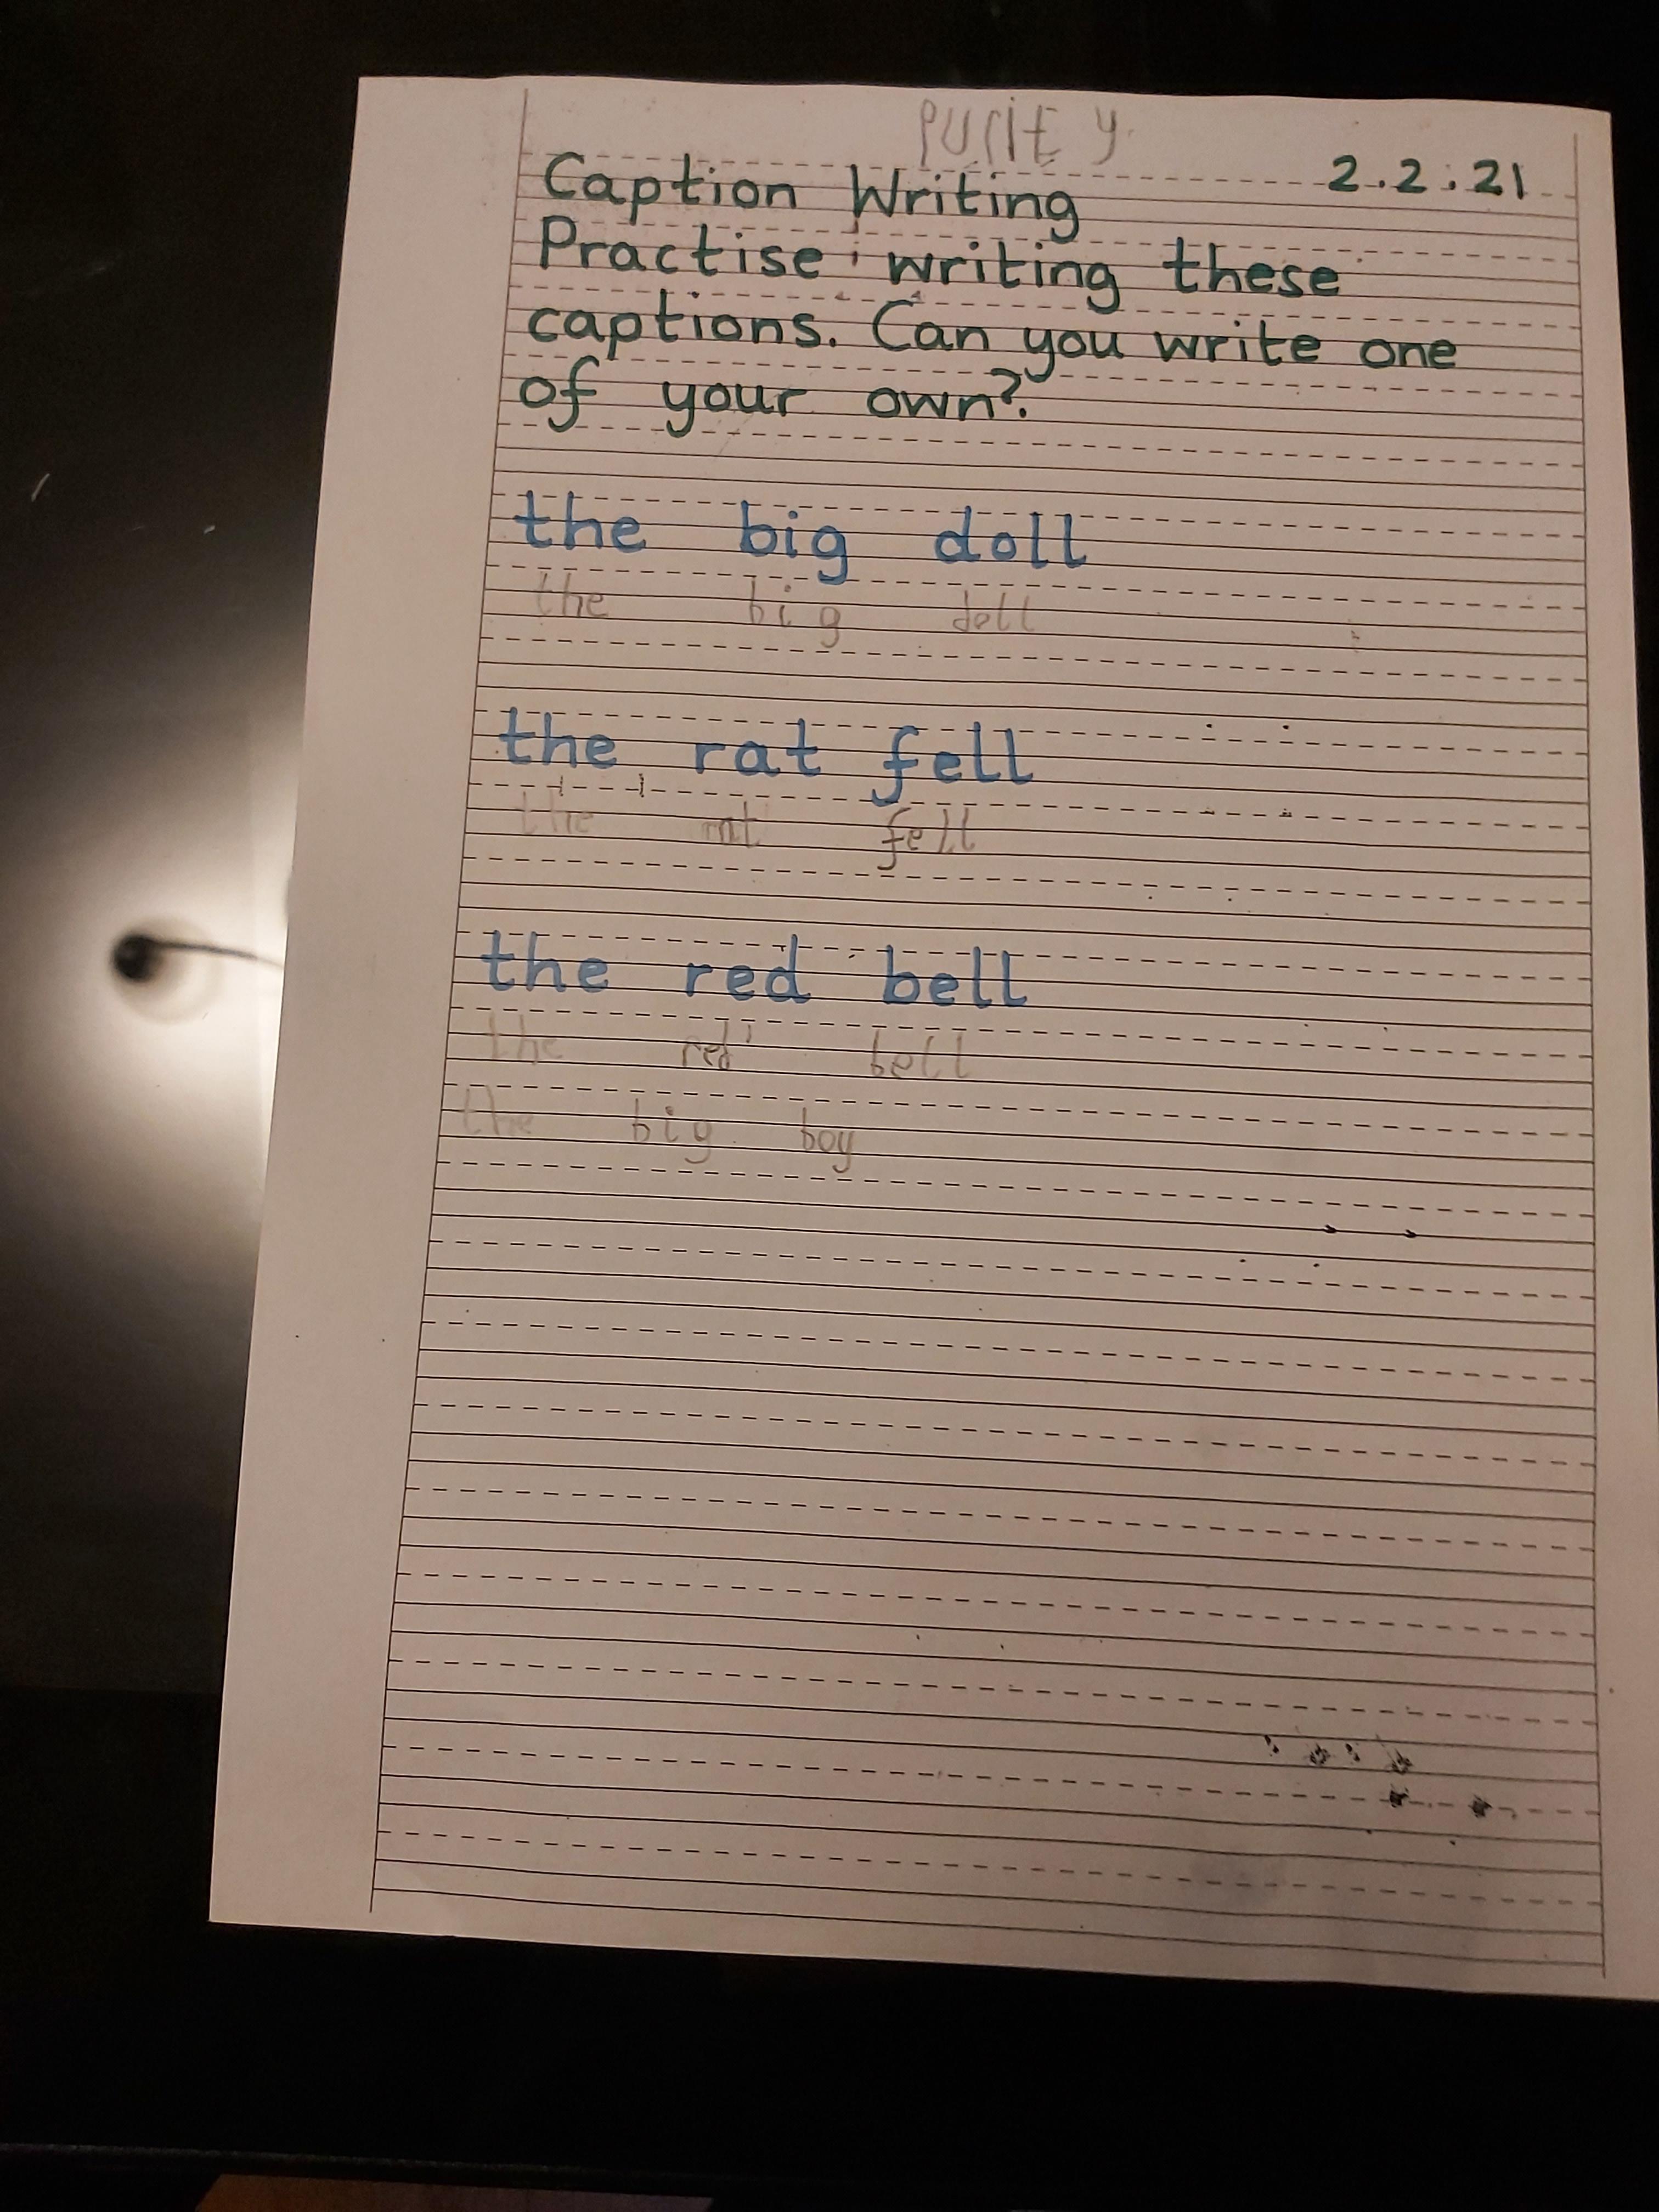 purity
Caption Writing 2.2.21
Practise writing these
captions. Can you write one
of your own?
the big doll
the big doll
the rat fell
the rat fell
the red bell
the red bell
the big boy